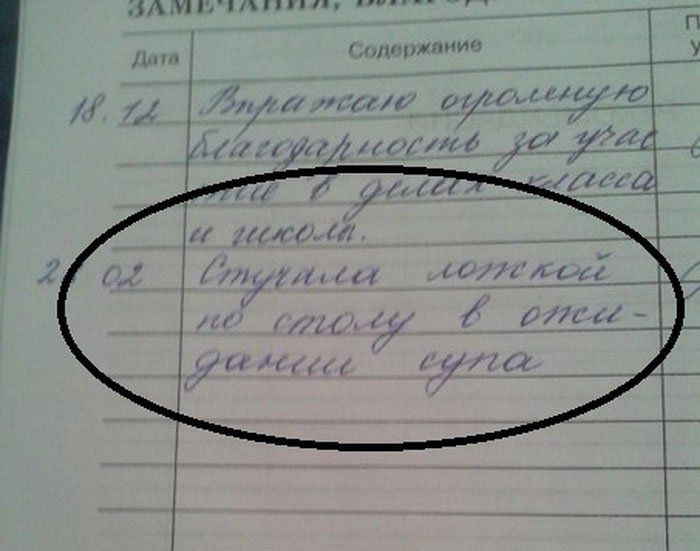 ЗАМЕЧАНИЯ, БЛАГОД
Дата Содержание
18.12 Выражаю огромную
благодарность за учас
тие в делах класса
и школы.
2 02 Стучала ложкой
по столу в ожи-
дании супа